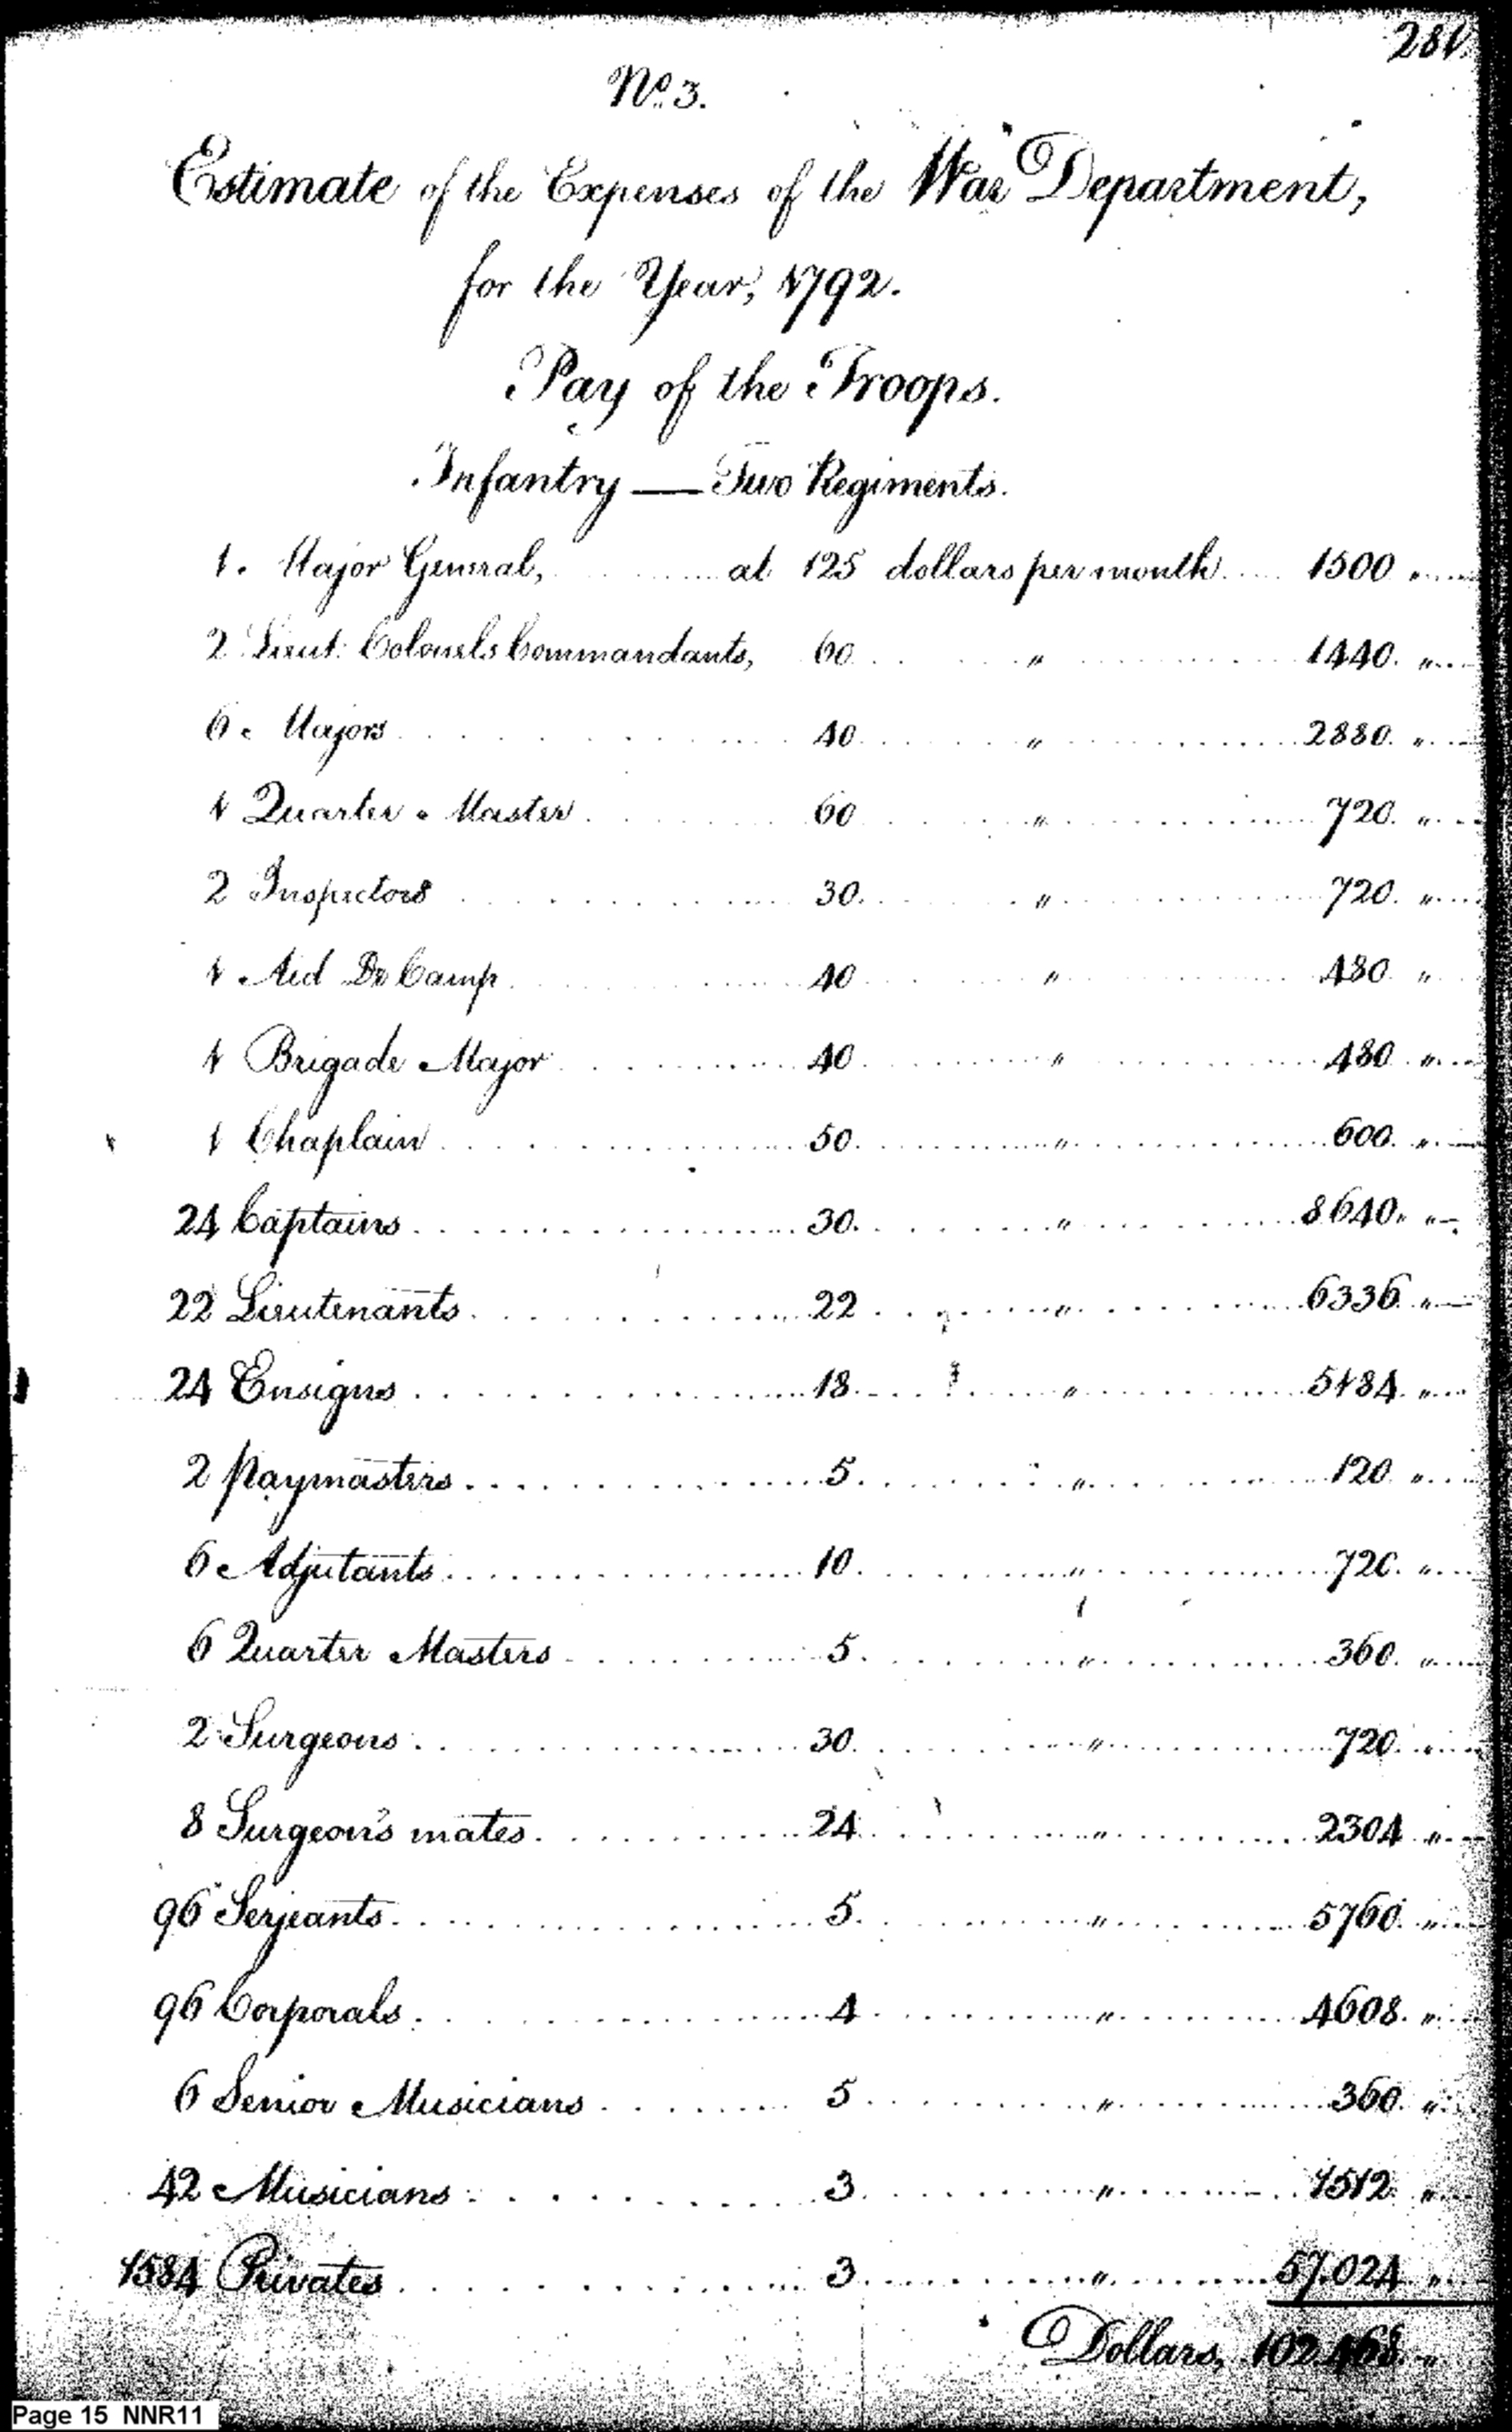 281.
No. 3.
Estimate of the Expenses of the War Department,
for the Year, 1792.
Pay of the Troops.
Infantry — Two Regiments.
1. Major General, at 125 dollars per month 1500 "
2 Lieut: Colonels Commandants, 60 " 1440. "
6. Majors 40 " 2880. "
1 Quarter-Master 60 " 720. "
2 Inspectors 30. " 720. "
1 Aid De Camp 40 " 480 "
1 Brigade Major 40 " 480 "
1 Chaplain 50. " 600. "
24 Captains 30. " 8640. "
22 Lieutenants 22 " 6336 "
24 Ensigns 18 " 5184 "
2 paymasters 5 " 120 "
6 Adjutants 10 " 720. "
6 Quarter Masters 5 " 360 "
2 Surgeons 30 " 720. "
8 Surgeon's mates 24 " 2304 "
96 Serjeants 5 " 5760 "
96 Corporals 4 " 4608. "
6 Senior Musicians 5 " 360. "
42 Musicians 3 " 1512. "
1584 Privates 3 " 57.024 "
Dollars, 102.468. "
Page 15 NNR11